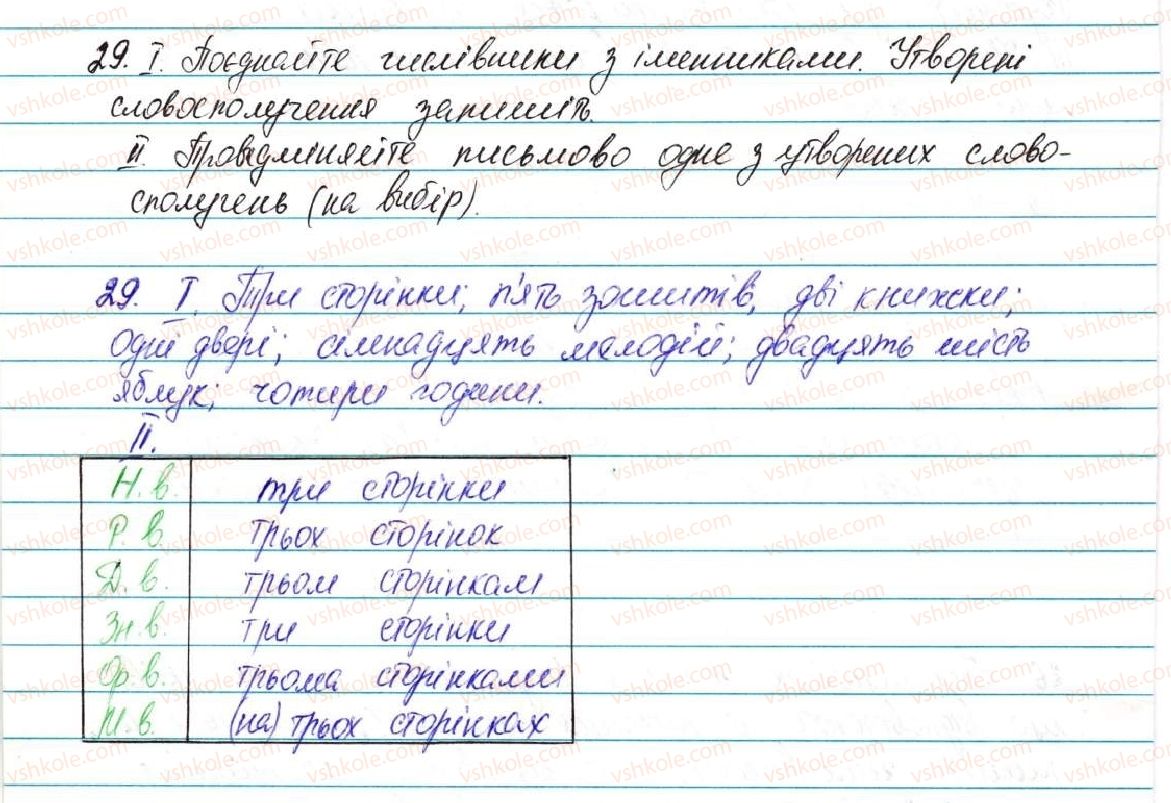 29. І. Поєднайте числівники з іменниками. Утворені
словосполучення запишіть.
ІІ. Провідміняйте письмово одне з утворених слово-
сполучень (на вибір).
29. І. Три сторінки; п'ять зошитів, дві книжки;
одні двері; сімнадцять мелодій; двадцять шість
яблук; чотири години.
ІІ.
Н. в. три сторінки
Р. в. трьох сторінок
Д. в. трьом сторінкам
Зн. в. три сторінки
Ор. в. трьома сторінками
М. в. (на) трьох сторінках